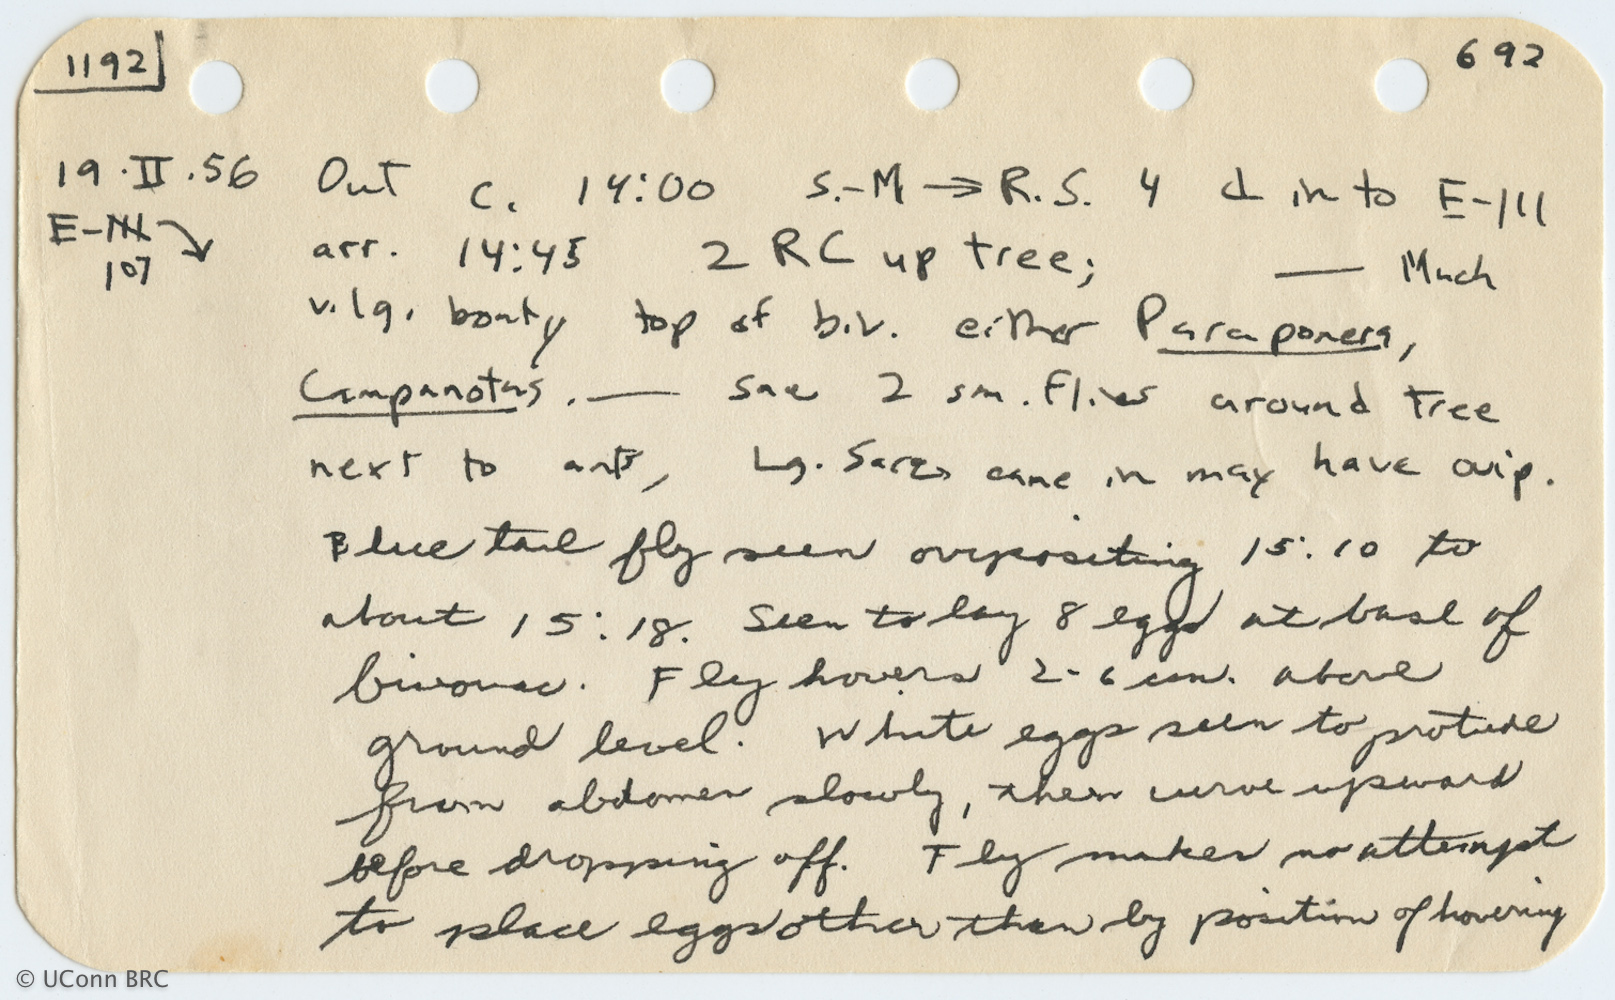 1192
692
19.II.56 Out c. 14:00 S.-M → R.S. 4 d into E-III
E-III
107
arr. 14:45 2 RC up tree; — Much
v. lg. booty top of biv. either Paraponera,
Camponotus. — saw 2 sm. flies around tree
next to ants, Lg. Sarc. came in may have ovip.
Blue tail fly seen ovipositing 15:10 to
about 15:18. Seen to lay 8 eggs at base of
bivouac. Fly hovers 2-6 cm. above
ground level. White eggs seen to protrude
from abdomen slowly, then curve upward
before dropping off. Fly makes no attempt
to place eggs other than by position of hovering
© UConn BRC